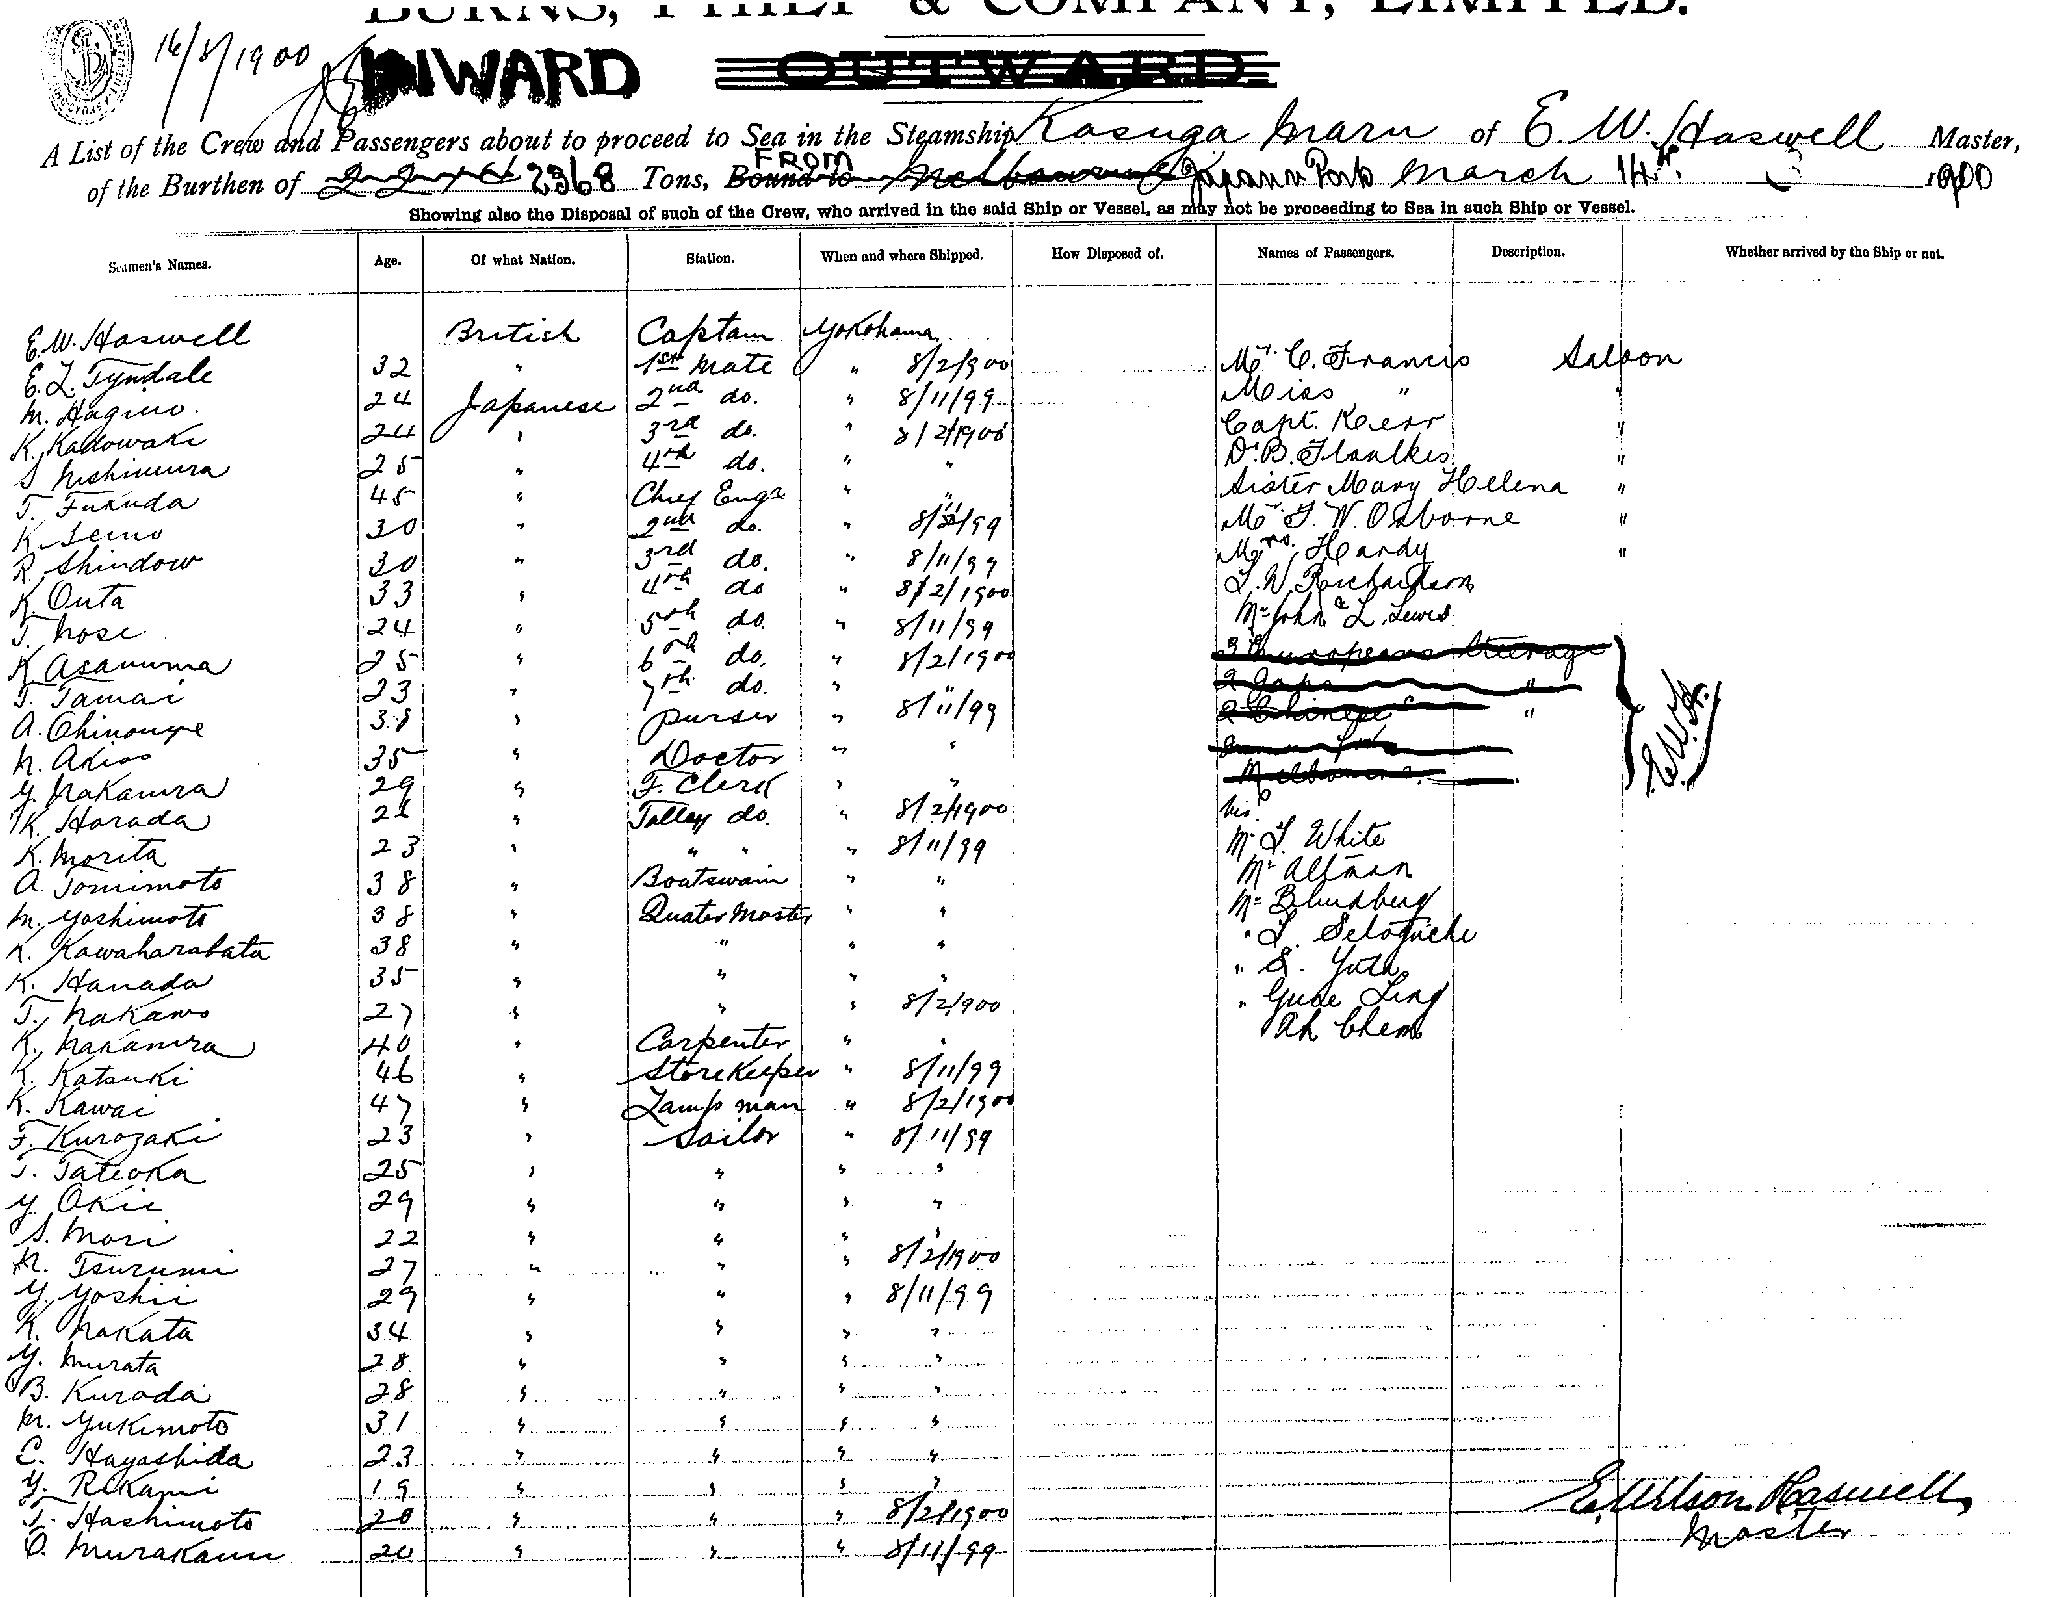 BURNS, PHILP & COMPANY, LIMITED.
16/3/1900
INWARD OUTWARD.
A List of the Crew and Passengers about to proceed to Sea in the Steamship Kasuga Maru of E. W. Haswell Master,
of the Burthen of 2368 Tons, Bound to From Melbourne Japan Ports March 14th 1900
Showing also the Disposal of such of the Crew, who arrived in the said Ship or Vessel, as may not be proceeding to Sea in such Ship or Vessel.
Seamen's Names. Age. Of what Nation. Station. When and where Shipped. How Disposed of. Names of Passengers. Description. Whether arrived by the Ship or not.
E. W. Haswell British Captain Yokohama
E. L. Tyndale 32 " 1st Mate " 8/2/900 Mr. C. Francis Saloon
M. Hagino 24 Japanese 2nd do. " 8/11/99 Miss " "
K. Kadowaki 24 " 3rd do. " 8/2/1900 Capt. Kerr "
S. Nishimura 25 " 4th do. " " Dr. B. "
T. Fukuda 45 " Chief Engr " " Sister Mary Helena "
K. Seino 30 " 2nd do. " 8/11/99 Mr. T. W. Osborne "
R. Shindow 30 " 3rd do. " 8/11/99 Mrs. Hardy "
K. Outa 33 " 4th do " 8/2/1900 T. W. Richardson
T. Nose 24 " 5th do. " 8/11/99 Mr John & L. Lewis
K. Asanuma 25 " 6th do. " 8/2/1900 3 Europeans Steerage
T. Tamai 23 " 7th do. " " 2 Japs "
A. Chinouye 38 " Purser " 8/11/99 2 Chinese "
N. 35 " Doctor " "
Y. Nakamura 29 " F. Clerk " " Melbourne
K. Harada 21 " Talley do. " 8/2/1900 Viz
K. Morita 23 " " " " 8/11/99 Mr T. White
A. Tomimoto 38 " Boatswain " " Mr Altman
M. Yoshimoto 38 " Quater Master " " Mr Blundberg
K. Kawaharabata 38 " " " " " T.
K. Hanada 35 " " " " " S. Yuta
T. Nakano 27 " " " 8/2/900 " Ling
K. Nakamura 40 " Carpenter " " Ah Chem
K. Katsuki 46 " Storekeeper " 8/11/99
K. Kawai 47 " Lamp man " 8/2/1900
F. Kurozaki 23 " Sailor " 8/11/99
T. Tateoka 25 " " " "
Y. Okie 29 " " " "
S. Mori 22 " " " "
K. Tsurumi 27 " " " 8/2/1900
Y. Yoshii 29 " " " 8/11/99
K. Nakata 34 " " " "
Y. Murata 28 " " " "
B. Kuroda 28 " " " "
M. Yukimoto 31 " " " "
C. Hayashida 23 " " " "
Y. Rikami 19 " " " "
T. Hashimoto 20 " " " 8/2/1900 E. Wilson Haswell
O. Murakami 20 " " " 8/11/99 Master